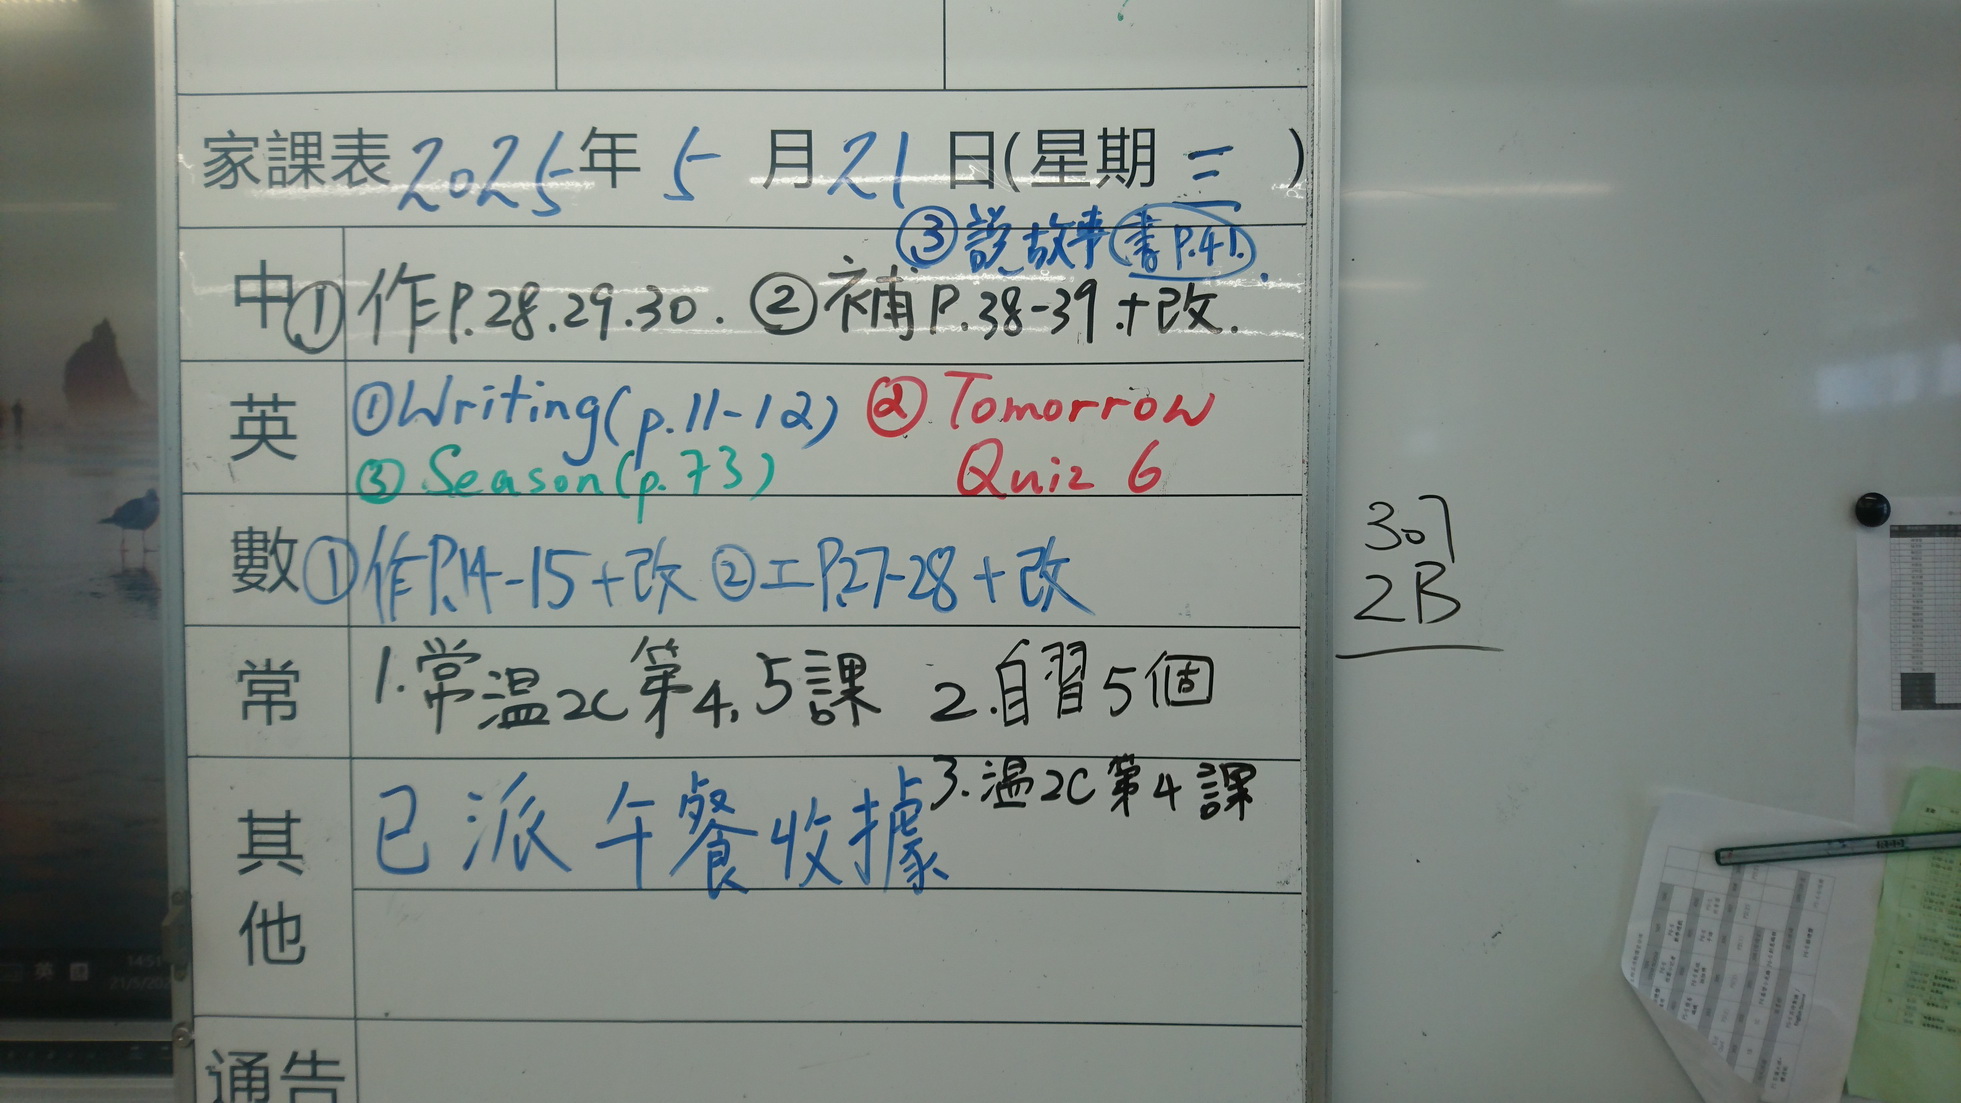 家課表 2025年 5 月 21 日(星期 三 )
③說故事(書P.41).
中 ①作P.28.29.30. ②補P.38-39.+改.
英 ①Writing(p.11-12) ② Tomorrow
③ Season(p.73) Quiz 6
數 ①作P.14-15+改 ②工P.27-28+改
常 1.常温2C第4,5課 2.自習5個
3.温2C第4課
其他 已派午餐收據
通告
307
2B
英
14:51